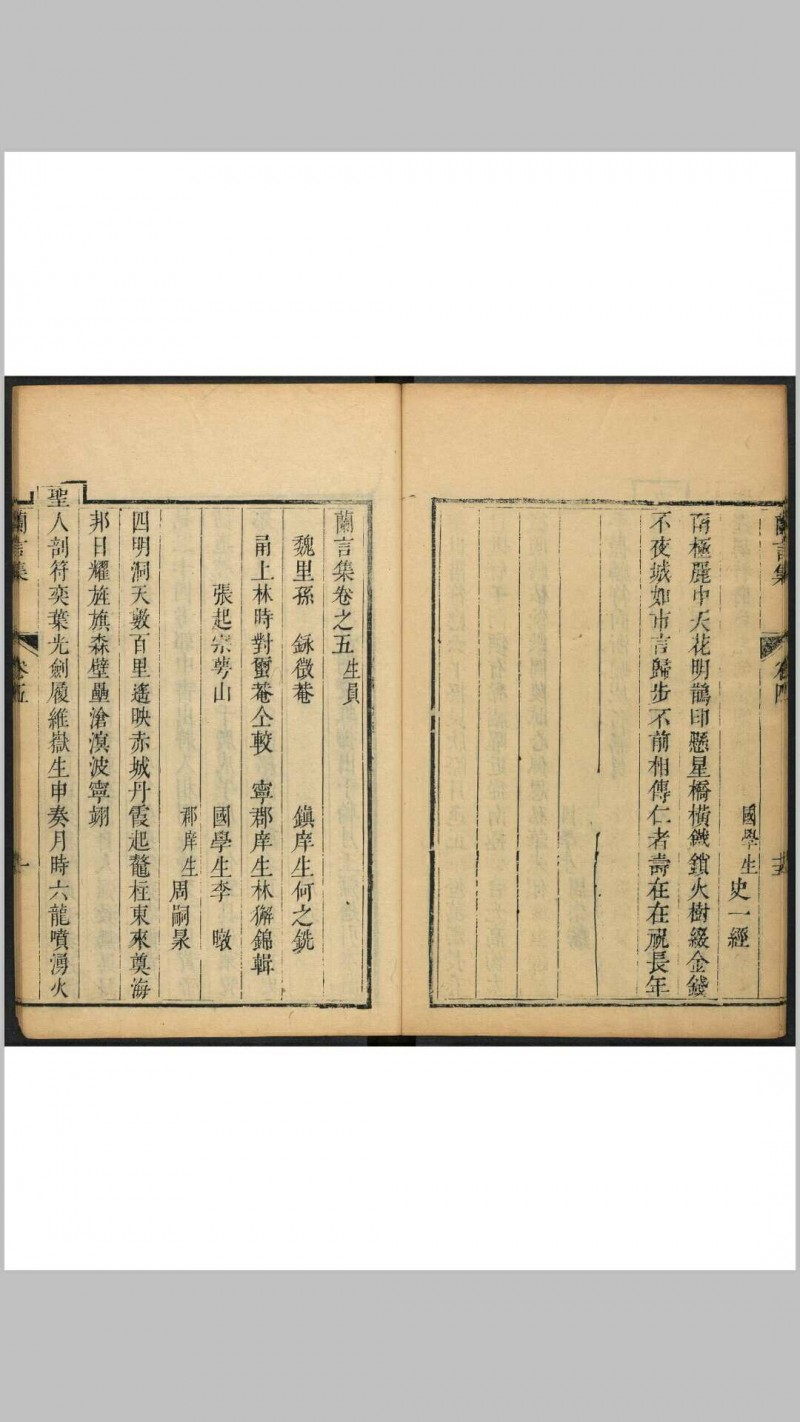 蘭言集 卷四
國學生史一經
南極麗中天花明鵲印懸星橋橫鐵鎖火樹綴金錢
不夜城如市言歸步不前相傳仁者壽在在祝長年
蘭言集卷之五生員
魏里孫 鉥徵菴 鎮庠生何之銑
甬上林時對蠒菴仝較 寧郡庠生林獬錦輯
張起宗夢山 國學生李 暾
郡庠生周嗣
四明洞天數百里遙映赤城丹霞起鼇柱東來奠海
邦日耀旌旗森壁壘滄溟波寧翊
聖人剖符奕葉光劍履維嶽生申奏月時六龍噴湧火
蘭言集 卷五 一